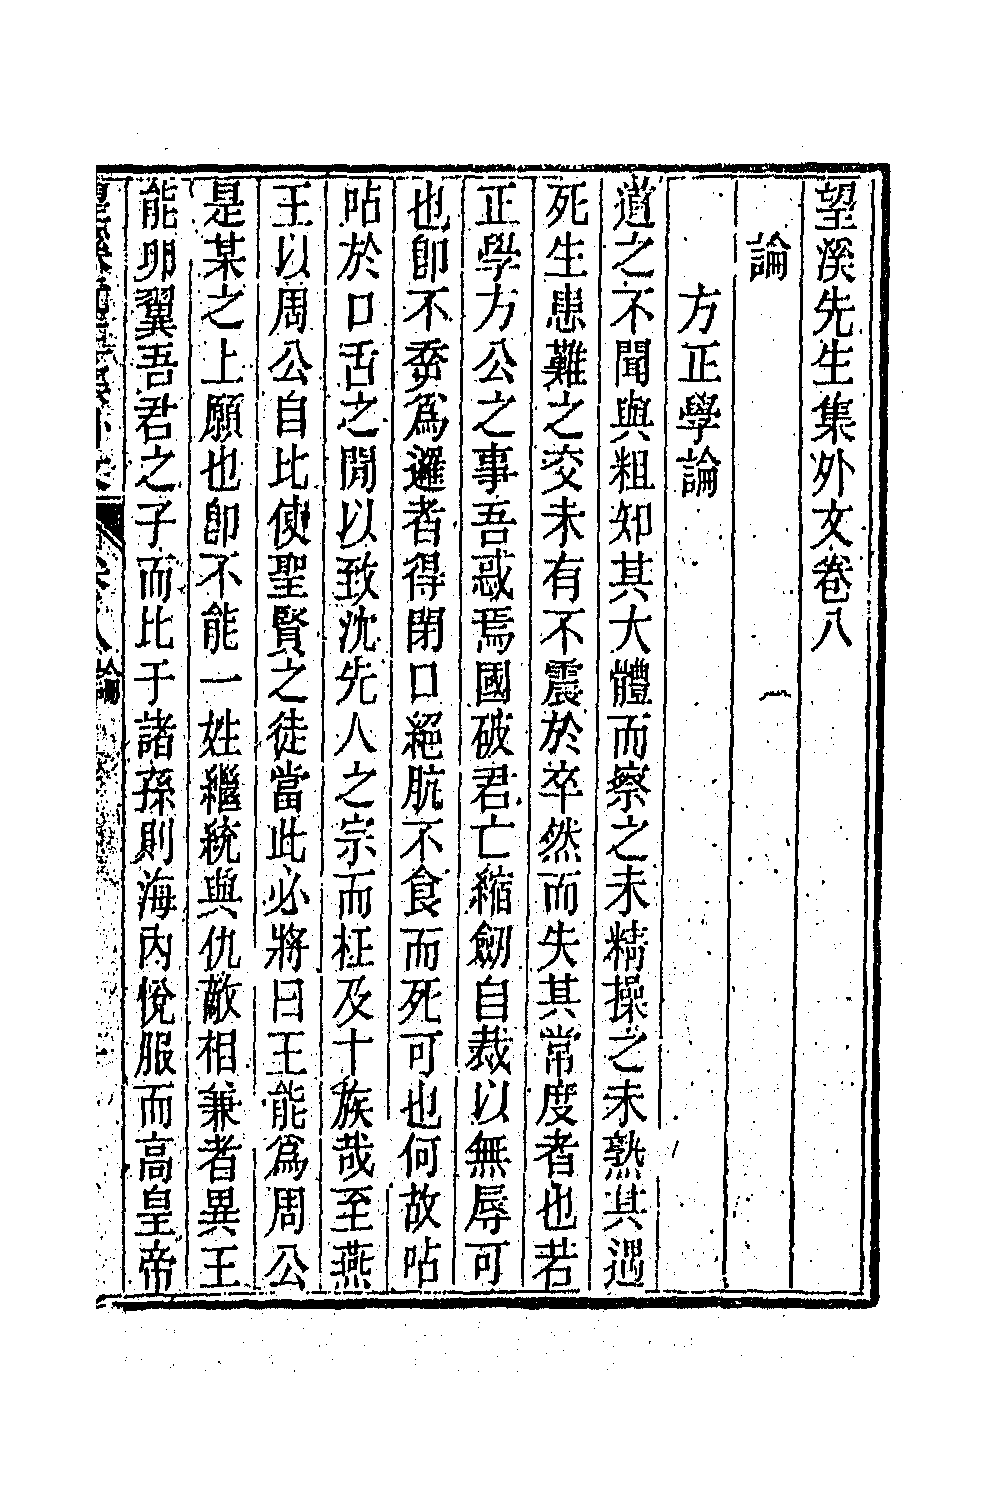 望溪先生集外文卷八
論
方正學論
道之不聞與粗知其大體而察之未精操之未熟其遇
死生患難之交未有不震於卒然而失其常度者也若
正學方公之事吾惑焉國破君亡縮劒自裁以無辱可
也卽不幸爲邏者得閉口絕肮不食而死可也何故呫
呫於口舌之閒以致沈先人之宗而枉及十族哉至燕
王以周公自比使聖賢之徒當此必將曰王能爲周公
是某之上願也卽不能一姓繼統與仇敵相兼者異王
能卵翼吾君之子而比于諸孫則海內悅服而高皇帝